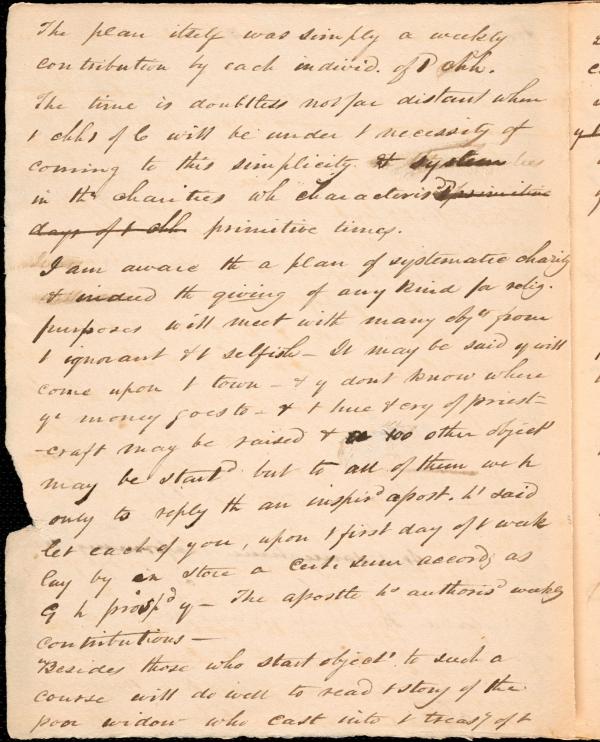 The plan itself was simply a weekly
contribution by each individ. of t chh.
The time is doubtless not far distant when
t chhs of C will be under t necessity of
coming to this simplicity & system
in thr charities wh characteris'd primitive
days of t chh primitive times.
I am aware th a plan of systematic charity
& indeed th giving of any kind for relig.
purposes will meet with many objns from
t ignorant & t selfish - It may be said y will
come upon t town - & y dont know where
yr money goes to - & t hue & cry of priest-
-craft may be raised & 100 other objectns
may be startd but to all of them we h
only to reply th an inspird apost. hs said
let each of you, upon t first day of t week
lay by in store a certn sum accordg as
G h prosp'd y - The apostle hs authorisd weekly
contributions -
Besides those who start objectns to such a
course will do well to read t story of the
poor widow who cast into t treasy of t